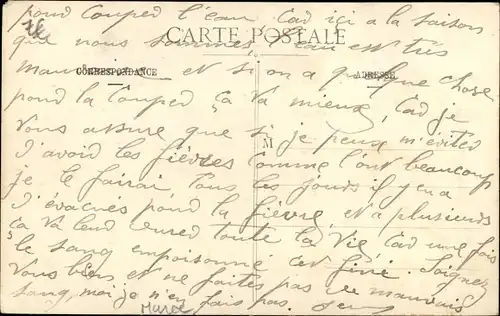 pour couper l'eau. Car ici a la saison
que nous sommes, l'eau est très
CARTE POSTALE
mauvaise et si on a quelque chose
CORRESPONDANCE
ADRESSE
pour la couper ça va mieux, car je
vous assure que si je peux m'éviter
M
d'avoir les fièvres comme l'ont beaucoup
je le ferai tous les jours il y en a
d'évacués pour la fièvre, et a plusieurs
ça va leur durer toute la vie car une fois
le sang empoisonné c'est fini. Soignez
vous bien et ne faites pas de mauvais
sang, moi je n'en fais pas.
Maroc